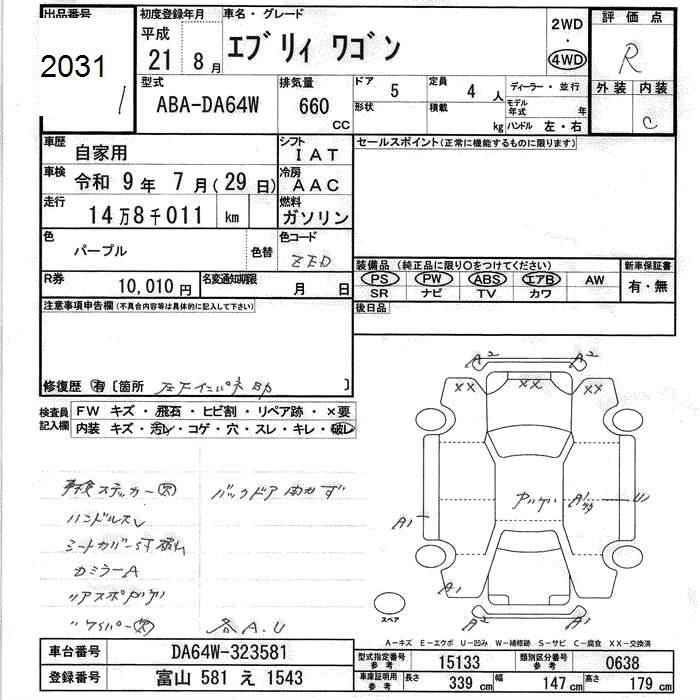 出品番号
2031
初度登録年月
平成
21 8月
車名・グレード
エブリィ ワゴン
2WD
・
4WD
評価点
R
外装 内装
C
型式
ABA-DA64W
排気量
660
CC
ドア 5
形状
定員 4 人
積載 kg
ディーラー・並行
モデル年式 年
ハンドル 左・右
車歴
自家用
シフト
IAT
セールスポイント(正常に機能するものに限ります)
車検
令和 9年 7月(29日)
冷房
AAC
走行
14万8千011 km
燃料
ガソリン
色
パープル
色替
色コード
ZED
装備品 (純正品に限り〇をつけてください)
PS PW ABS エアB AW
SR ナビ TV カワ
新車保証書
有・無
R券
10,010円
名変通知期限
月 日
後日品
注意事項申告欄(不具合内容等は具体的に記入して下さい)
修復歴 有 [箇所 ]
検査員
記入欄
FW キズ・飛石・ヒビ割・リペア跡・×要
内装 キズ・汚レ・コゲ・穴・スレ・キレ・破レ
車検ステッカー欠
バックドア
ハンドルスレ
シートカバー
カミラーA
リアスポ
ワイパー欠
各A.U
A2 A2
XX XX XX
A1
A1
U
A1
A2 A2
スペア
A-キズ E-エクボ U-凹み W-補修跡 S-サビ C-腐食 XX-交換済
車台番号
DA64W-323581
型式指定番号
参考
15133
類別区分番号
参考
0638
登録番号
富山 581 え 1543
車庫証明用
参考
長さ 339 cm
幅 147 cm
高さ 179 cm